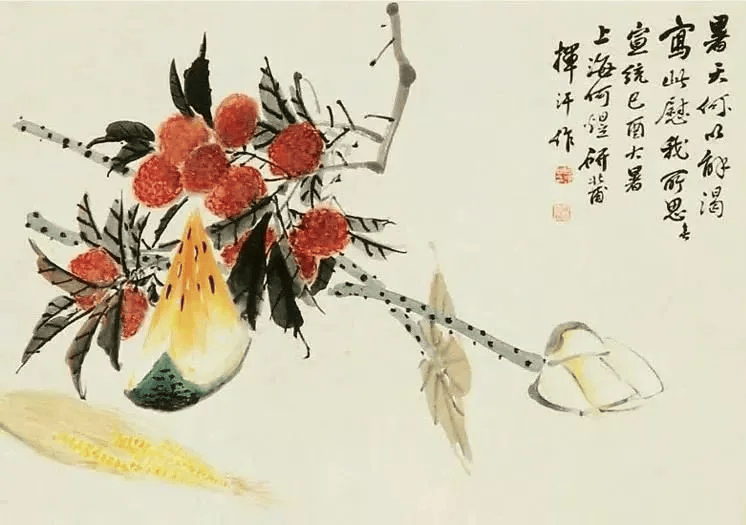 暑天何以解渴
寫此慰我所思
宣統己酉大暑
上海何煜研北甫
揮汗作